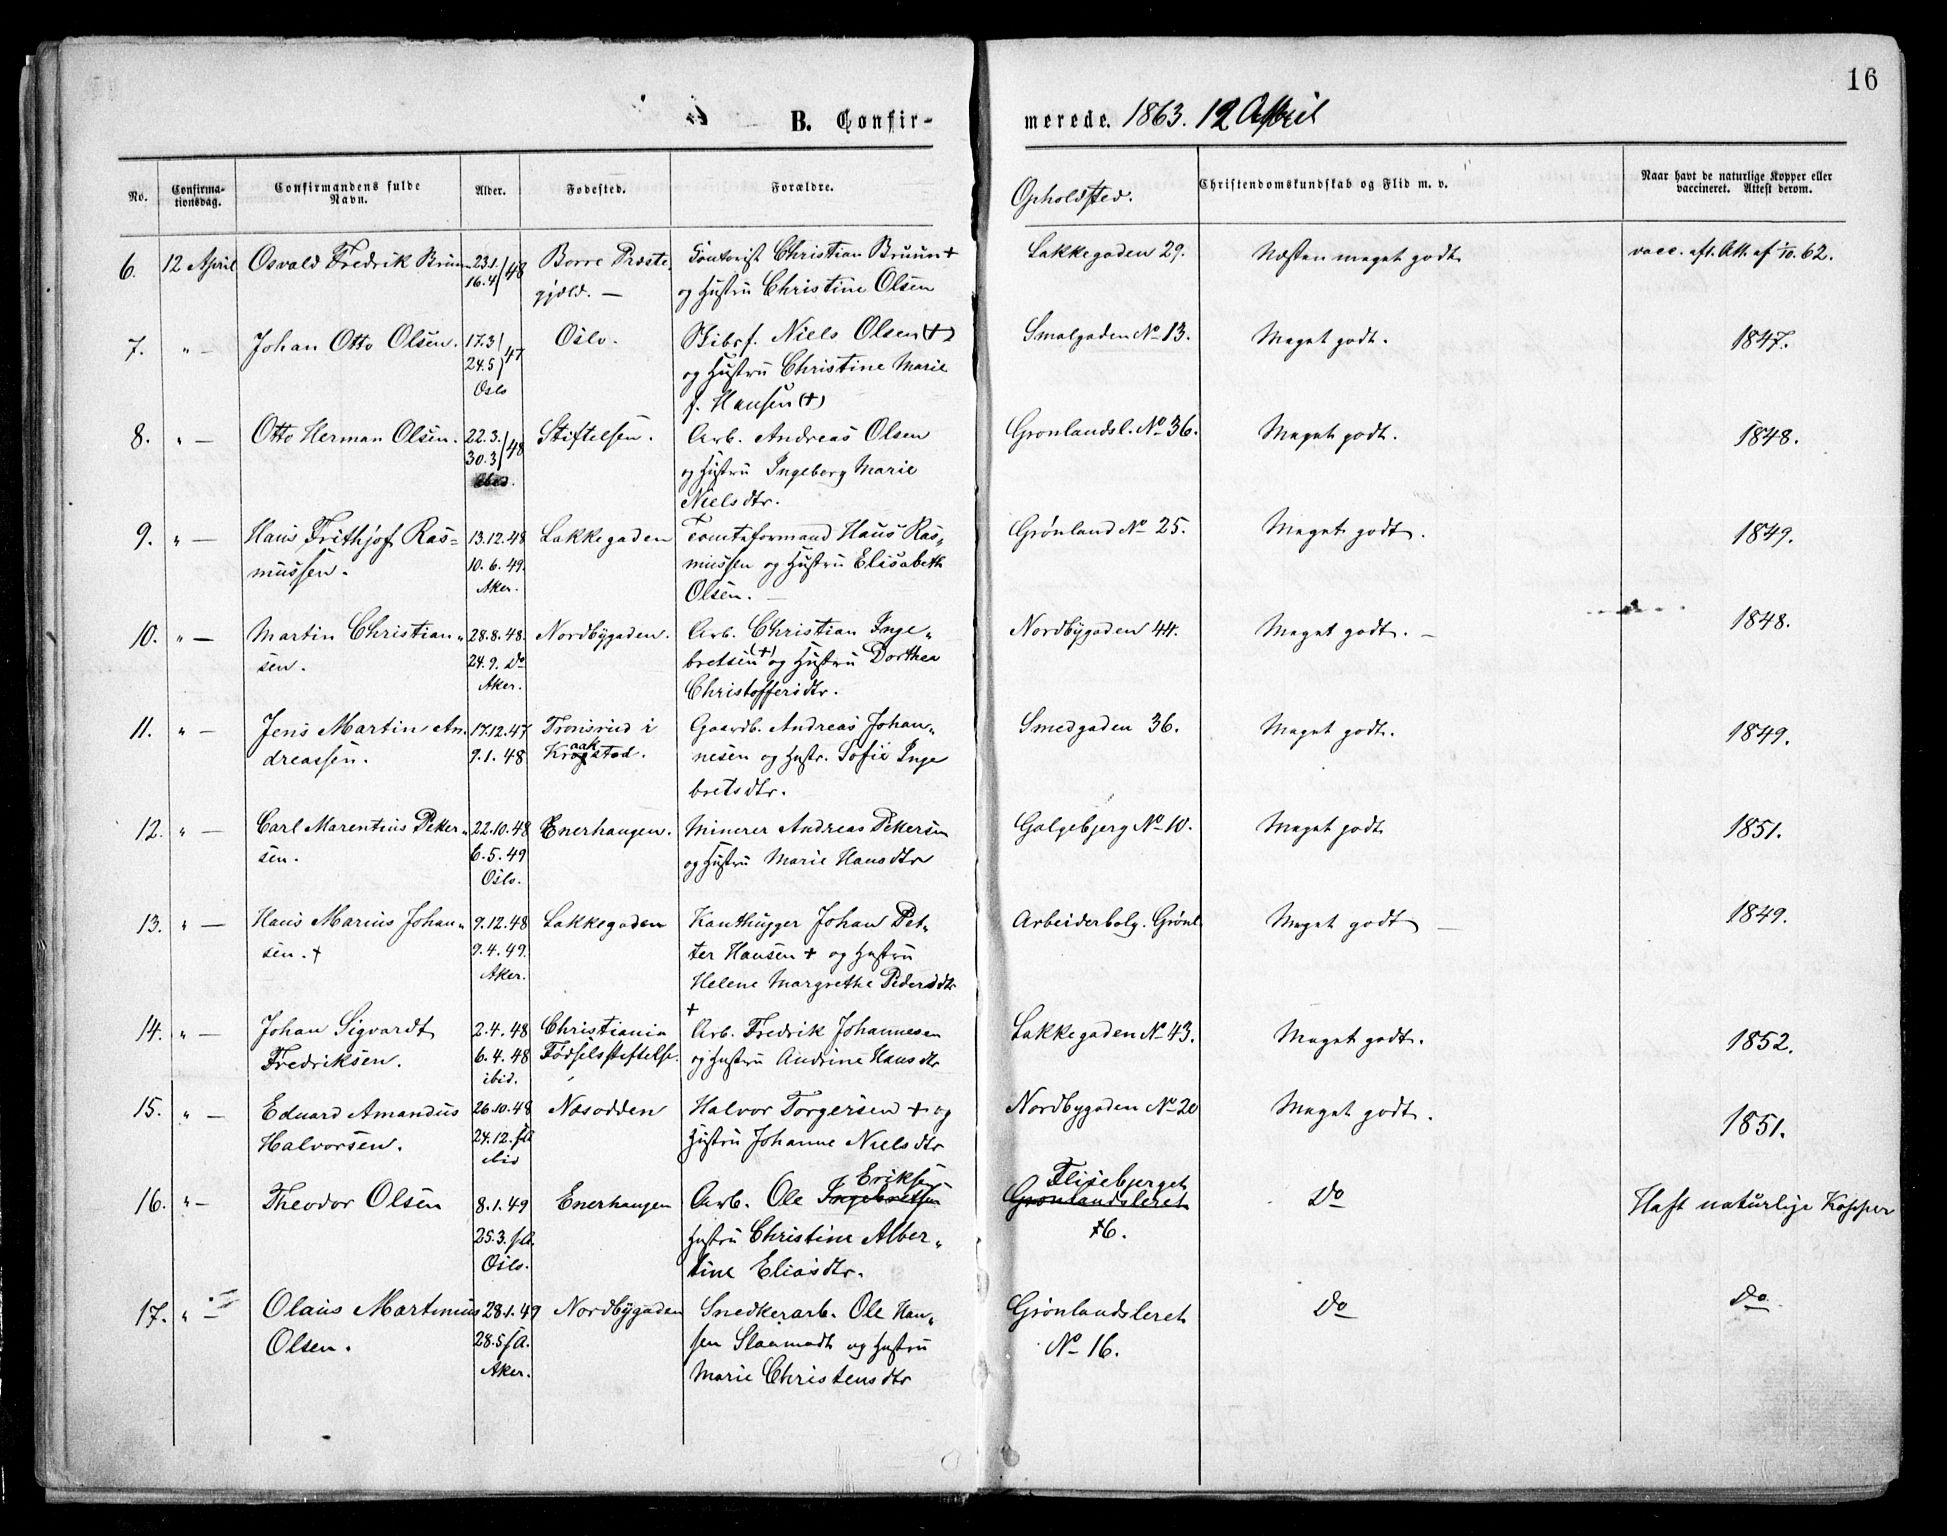 16
B. Confirmerede. 1863. 12 April
No.
Confirmationsdag.
Confirmandens fulde Navn.
Alder.
Fødested.
Forældre.
Opholdsted.
Christendomskundskab og Flid m. v.
Naar havt de naturlige Kopper eller vaccineret. Attest derom.
6. 12 April Osvald Fredrik Bruun 23.1. Borre Præste Contorist Christian Bruun + Lakkegaden 29. Næsten meget godt vacc. aft. Att. af 1/10. 62.
16.4 /48 gjeld. — og Hustru Christine Olsen
7. " — Johan Otto Olsen. 17.3 Oslo. Skibsf. Niels Olsen (+) Smalgaden No 13. Meget godt. 1847.
24.5 /47 og Hustru Christine Marie
Oslo f. Hansen (+)
8. " — Otto Herman Olsen. 22.3. Stiftelsen. Arb. Andreas Olsen Grønlandsl. No 36. Meget godt. 1848.
30.3 /48 og Hustru Ingeborg Marie
ibid. Nielsdtr.
9. " — Hans Frithjof Ras= 13.12.48 Lakkegaden Tomteformand Hans Ras= Grønland No 25. Meget godt. 1849.
mussen. 10.6.49. mussen og Hustru Elisabeth
Aker. Olsen. —
10. " — Martin Christian= 28.8.48. Nordbygaden. Arb. Christian Inge= Nordbygaden 44. Meget godt. — 1848.
sen. 24.9. Do bretsen (+) og Hustru Dorthea
Aker. Christoffersdtr.
11. " — Jens Martin An= 17.12.47 Tronsrud i Gaardb. Andreas Johan= Smedgaden 36. Meget godt. 1849.
dreassen. 9.1.48 Kraakstad. nesen og Hustr. Sofie Inge
bretsdtr.
12. " — Carl Marentius Peter= 22.10.48 Enerhaugen. Minerer Andreas Petersen Galgebjerg No 10. Meget godt 1851.
sen. 6.5.49 og Hustru Marie Hansdtr
Oslo.
13. " — Hans Marius Johan= 9.12.48 Lakkegaden Kanthugger Johan Pet= Arbeiderbolg. Grønl. Meget godt — 1849.
sen. + 9.4.49. ter Hansen + og Hustru
Aker. Helene Margrethe Pedersdtr
+
14. " — Johan Sigvardt 2.4.48 Christiania Arb. Fredrik Johannesen Lakkegaden No 43. Meget godt. 1852.
Fredriksen. 6.4.48 Fødselsstiftelse. og Hustru Andrine Hansdtr
ibid.
15. " — Eduard Amandus 26.10.48 Nesodden Halvor Torgersen + og Nordbygaden No 20 Meget godt. 1851.
Halvorsen. 24.12. s.A. Hustru Johanne Nielsdtr
ibid
Eriksen Flisebjerget
16. " — Theodor Olsen 8.1.49 Enerhaugen Arb. Ole Ingebretsen Grønlandsleret Do Haft naturlige Kopper
25.3. s.A. Hustru Christine Alber= 6.
Oslo. tine Eliasdtr.
17. " — Olaus Martinius 28.1.49 Nordbygaden Snedkerarb. Ole Han= Grønlandsleret Do Do
Olsen. 28.5 s.A. sen Slaamodt og Hustru No 16.
Aker. Marie Christensdtr